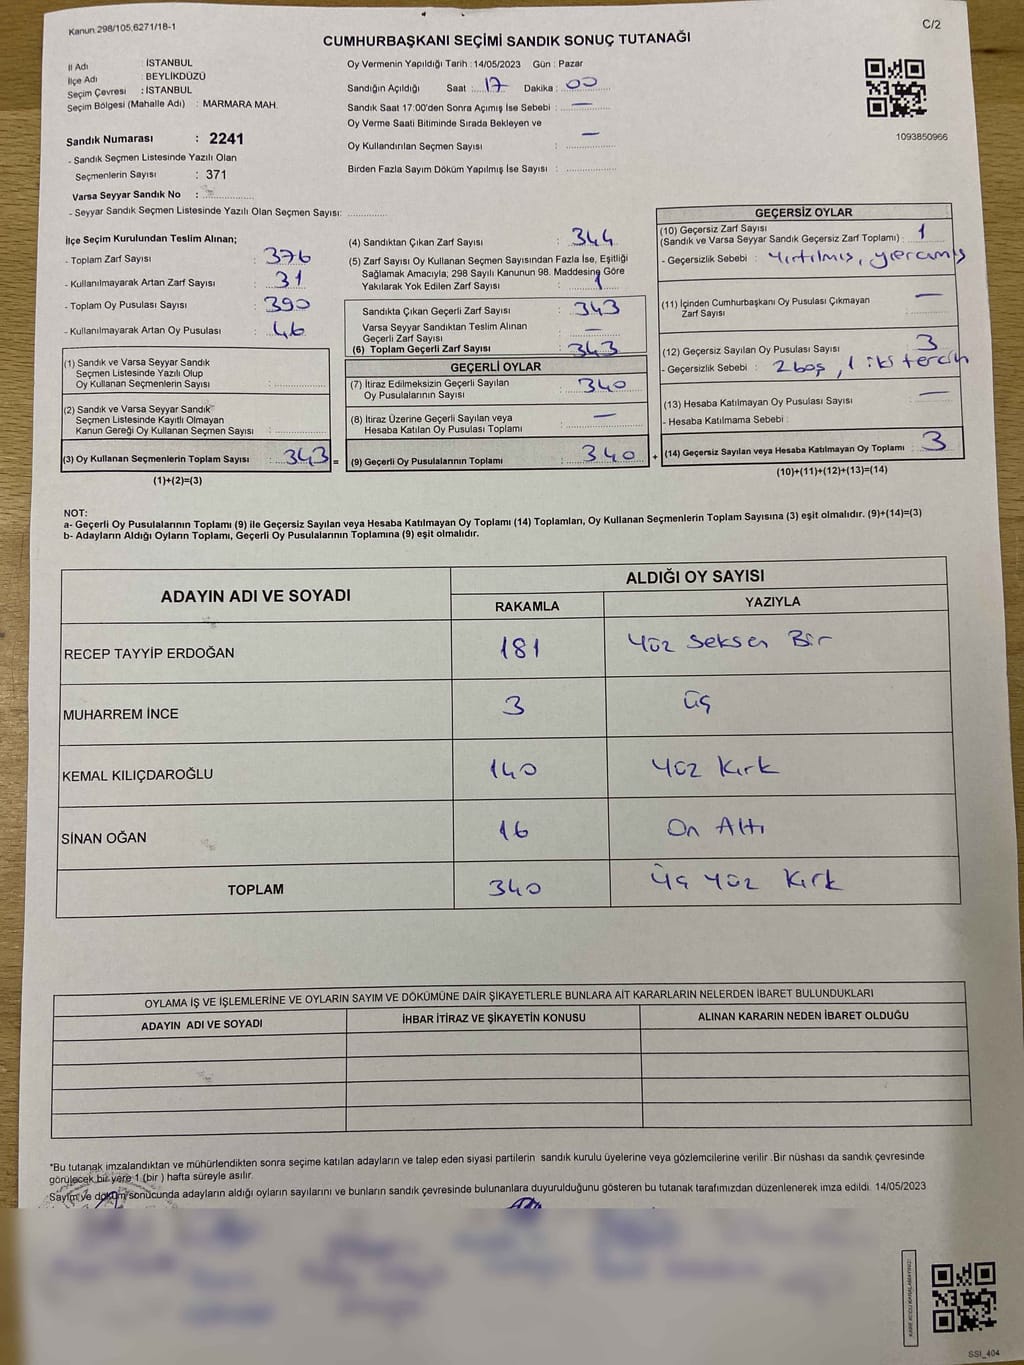 Kanun.298/105,6271/18-1
C/2
CUMHURBAŞKANI SEÇİMİ SANDIK SONUÇ TUTANAĞI
İl Adı : İSTANBUL
İlçe Adı : BEYLİKDÜZÜ
Seçim Çevresi : İSTANBUL
Seçim Bölgesi (Mahalle Adı) : MARMARA MAH.
Sandık Numarası : 2241
- Sandık Seçmen Listesinde Yazılı Olan
Seçmenlerin Sayısı : 371
Varsa Seyyar Sandık No :
- Seyyar Sandık Seçmen Listesinde Yazılı Olan Seçmen Sayısı:
Oy Vermenin Yapıldığı Tarih : 14/05/2023 Gün : Pazar
Sandığın Açıldığı Saat : 17 Dakika : 00
Sandık Saat 17:00'den Sonra Açımış İse Sebebi : —
Oy Verme Saati Bitiminde Sırada Bekleyen ve
Oy Kullandırılan Seçmen Sayısı : —
Birden Fazla Sayım Döküm Yapılmış İse Sayısı :
1093850966
İlçe Seçim Kurulundan Teslim Alınan;
- Toplam Zarf Sayısı : 376
- Kullanılmayarak Artan Zarf Sayısı : 31
- Toplam Oy Pusulası Sayısı : 390
- Kullanılmayarak Artan Oy Pusulası : 46
(1) Sandık ve Varsa Seyyar Sandık
Seçmen Listesinde Yazılı Olup
Oy Kullanan Seçmenlerin Sayısı :
(2) Sandık ve Varsa Seyyar Sandık
Seçmen Listesinde Kayıtlı Olmayan
Kanun Gereği Oy Kullanan Seçmen Sayısı :
(3) Oy Kullanan Seçmenlerin Toplam Sayısı : 343 =
(1)+(2)=(3)
(4) Sandıktan Çıkan Zarf Sayısı : 344
(5) Zarf Sayısı Oy Kullanan Seçmen Sayısından Fazla İse, Eşitliği
Sağlamak Amacıyla; 298 Sayılı Kanunun 98. Maddesine Göre
Yakılarak Yok Edilen Zarf Sayısı : 1
Sandıkta Çıkan Geçerli Zarf Sayısı : 343
Varsa Seyyar Sandıktan Teslim Alınan
Geçerli Zarf Sayısı : —
(6) Toplam Geçerli Zarf Sayısı : 343
GEÇERLİ OYLAR
(7) İtiraz Edilmeksizin Geçerli Sayılan
Oy Pusulalarının Sayısı : 340
(8) İtiraz Üzerine Geçerli Sayılan veya
Hesaba Katılan Oy Pusulası Toplamı : —
(9) Geçerli Oy Pusulalarının Toplamı : 340 +
GEÇERSİZ OYLAR
(10) Geçersiz Zarf Sayısı
(Sandık ve Varsa Seyyar Sandık Geçersiz Zarf Toplamı) : 1
- Geçersizlik Sebebi : Yırtılmış,
(11) İçinden Cumhurbaşkanı Oy Pusulası Çıkmayan
Zarf Sayısı : —
(12) Geçersiz Sayılan Oy Pusulası Sayısı : 3
- Geçersizlik Sebebi : 2 boş, 1 iki tercih
(13) Hesaba Katılmayan Oy Pusulası Sayısı : —
- Hesaba Katılmama Sebebi :
(14) Geçersiz Sayılan veya Hesaba Katılmayan Oy Toplamı : 3
(10)+(11)+(12)+(13)=(14)
NOT:
a- Geçerli Oy Pusulalarının Toplamı (9) ile Geçersiz Sayılan veya Hesaba Katılmayan Oy Toplamı (14) Toplamları, Oy Kullanan Seçmenlerin Toplam Sayısına (3) eşit olmalıdır. (9)+(14)=(3)
b- Adayların Aldığı Oyların Toplamı, Geçerli Oy Pusulalarının Toplamına (9) eşit olmalıdır.
ADAYIN ADI VE SOYADI ALDIĞI OY SAYISI
RAKAMLA YAZIYLA
RECEP TAYYİP ERDOĞAN 181 Yüz Seksen Bir
MUHARREM İNCE 3 üç
KEMAL KILIÇDAROĞLU 140 Yüz Kırk
SİNAN OĞAN 16 On Altı
TOPLAM 340 Üç Yüz Kırk
OYLAMA İŞ VE İŞLEMLERİNE VE OYLARIN SAYIM VE DÖKÜMÜNE DAİR ŞİKAYETLERLE BUNLARA AİT KARARLARIN NELERDEN İBARET BULUNDUKLARI
ADAYIN ADI VE SOYADI İHBAR İTİRAZ VE ŞİKAYETİN KONUSU ALINAN KARARIN NEDEN İBARET OLDUĞU
*Bu tutanak imzalandıktan ve mühürlendikten sonra seçime katılan adayların ve talep eden siyasi partilerin sandık kurulu üyelerine veya gözlemcilerine verilir .Bir nüshası da sandık çevresinde
görülecek bir yere 1 (bir ) hafta süreyle asılır.
Sayım ve döküm sonucunda adayların aldığı oyların sayılarını ve bunların sandık çevresinde bulunanlara duyurulduğunu gösteren bu tutanak tarafımızdan düzenlenerek imza edildi. 14/05/2023
SSI_404